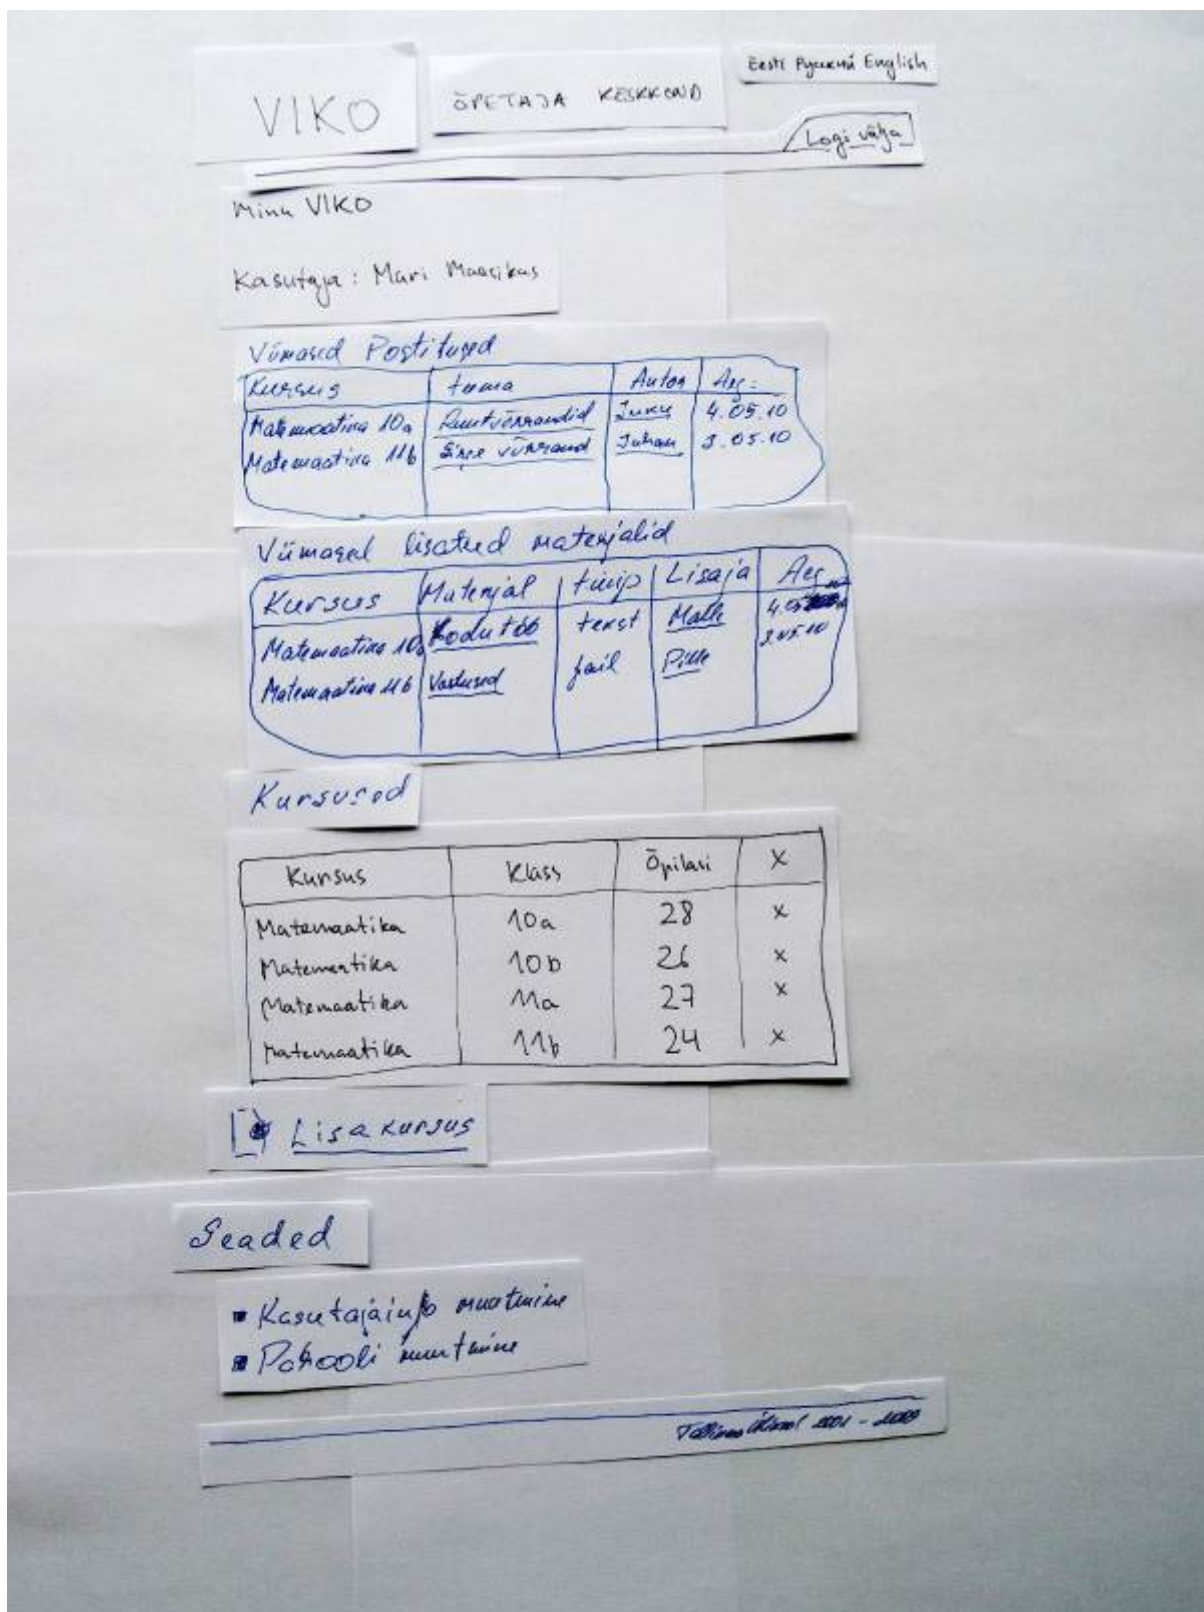 VIKO
ÕPETAJA KESKKOND
Eesti Русский English
Logi välja
Minu VIKO
Kasutaja: Mari Maasikas
Viimased Postitused
Kursus teema Autor Aeg
Matemaatika 10a Ruutvõrrandid Juku 4.05.10
Matemaatika 11b Juhan 3.05.10
Viimasel lisatud materjalid
Kursus Materjal tüüp Lisaja Aeg
Matemaatika 10a Kodutöö tekst Malle
3.05.10
Matemaatika 11b Vastused fail Pille
Kursused
Kursus Klass Õpilasi x
Matemaatika 10a 28 x
Matemaatika 10b 26 x
Matemaatika 11a 27 x
Matemaatika 11b 24 x
Lisa kursus
Seaded
Kasutajainfo muutmine
Parooli muutmine
Tallinna Ülikool 2001 - 2009